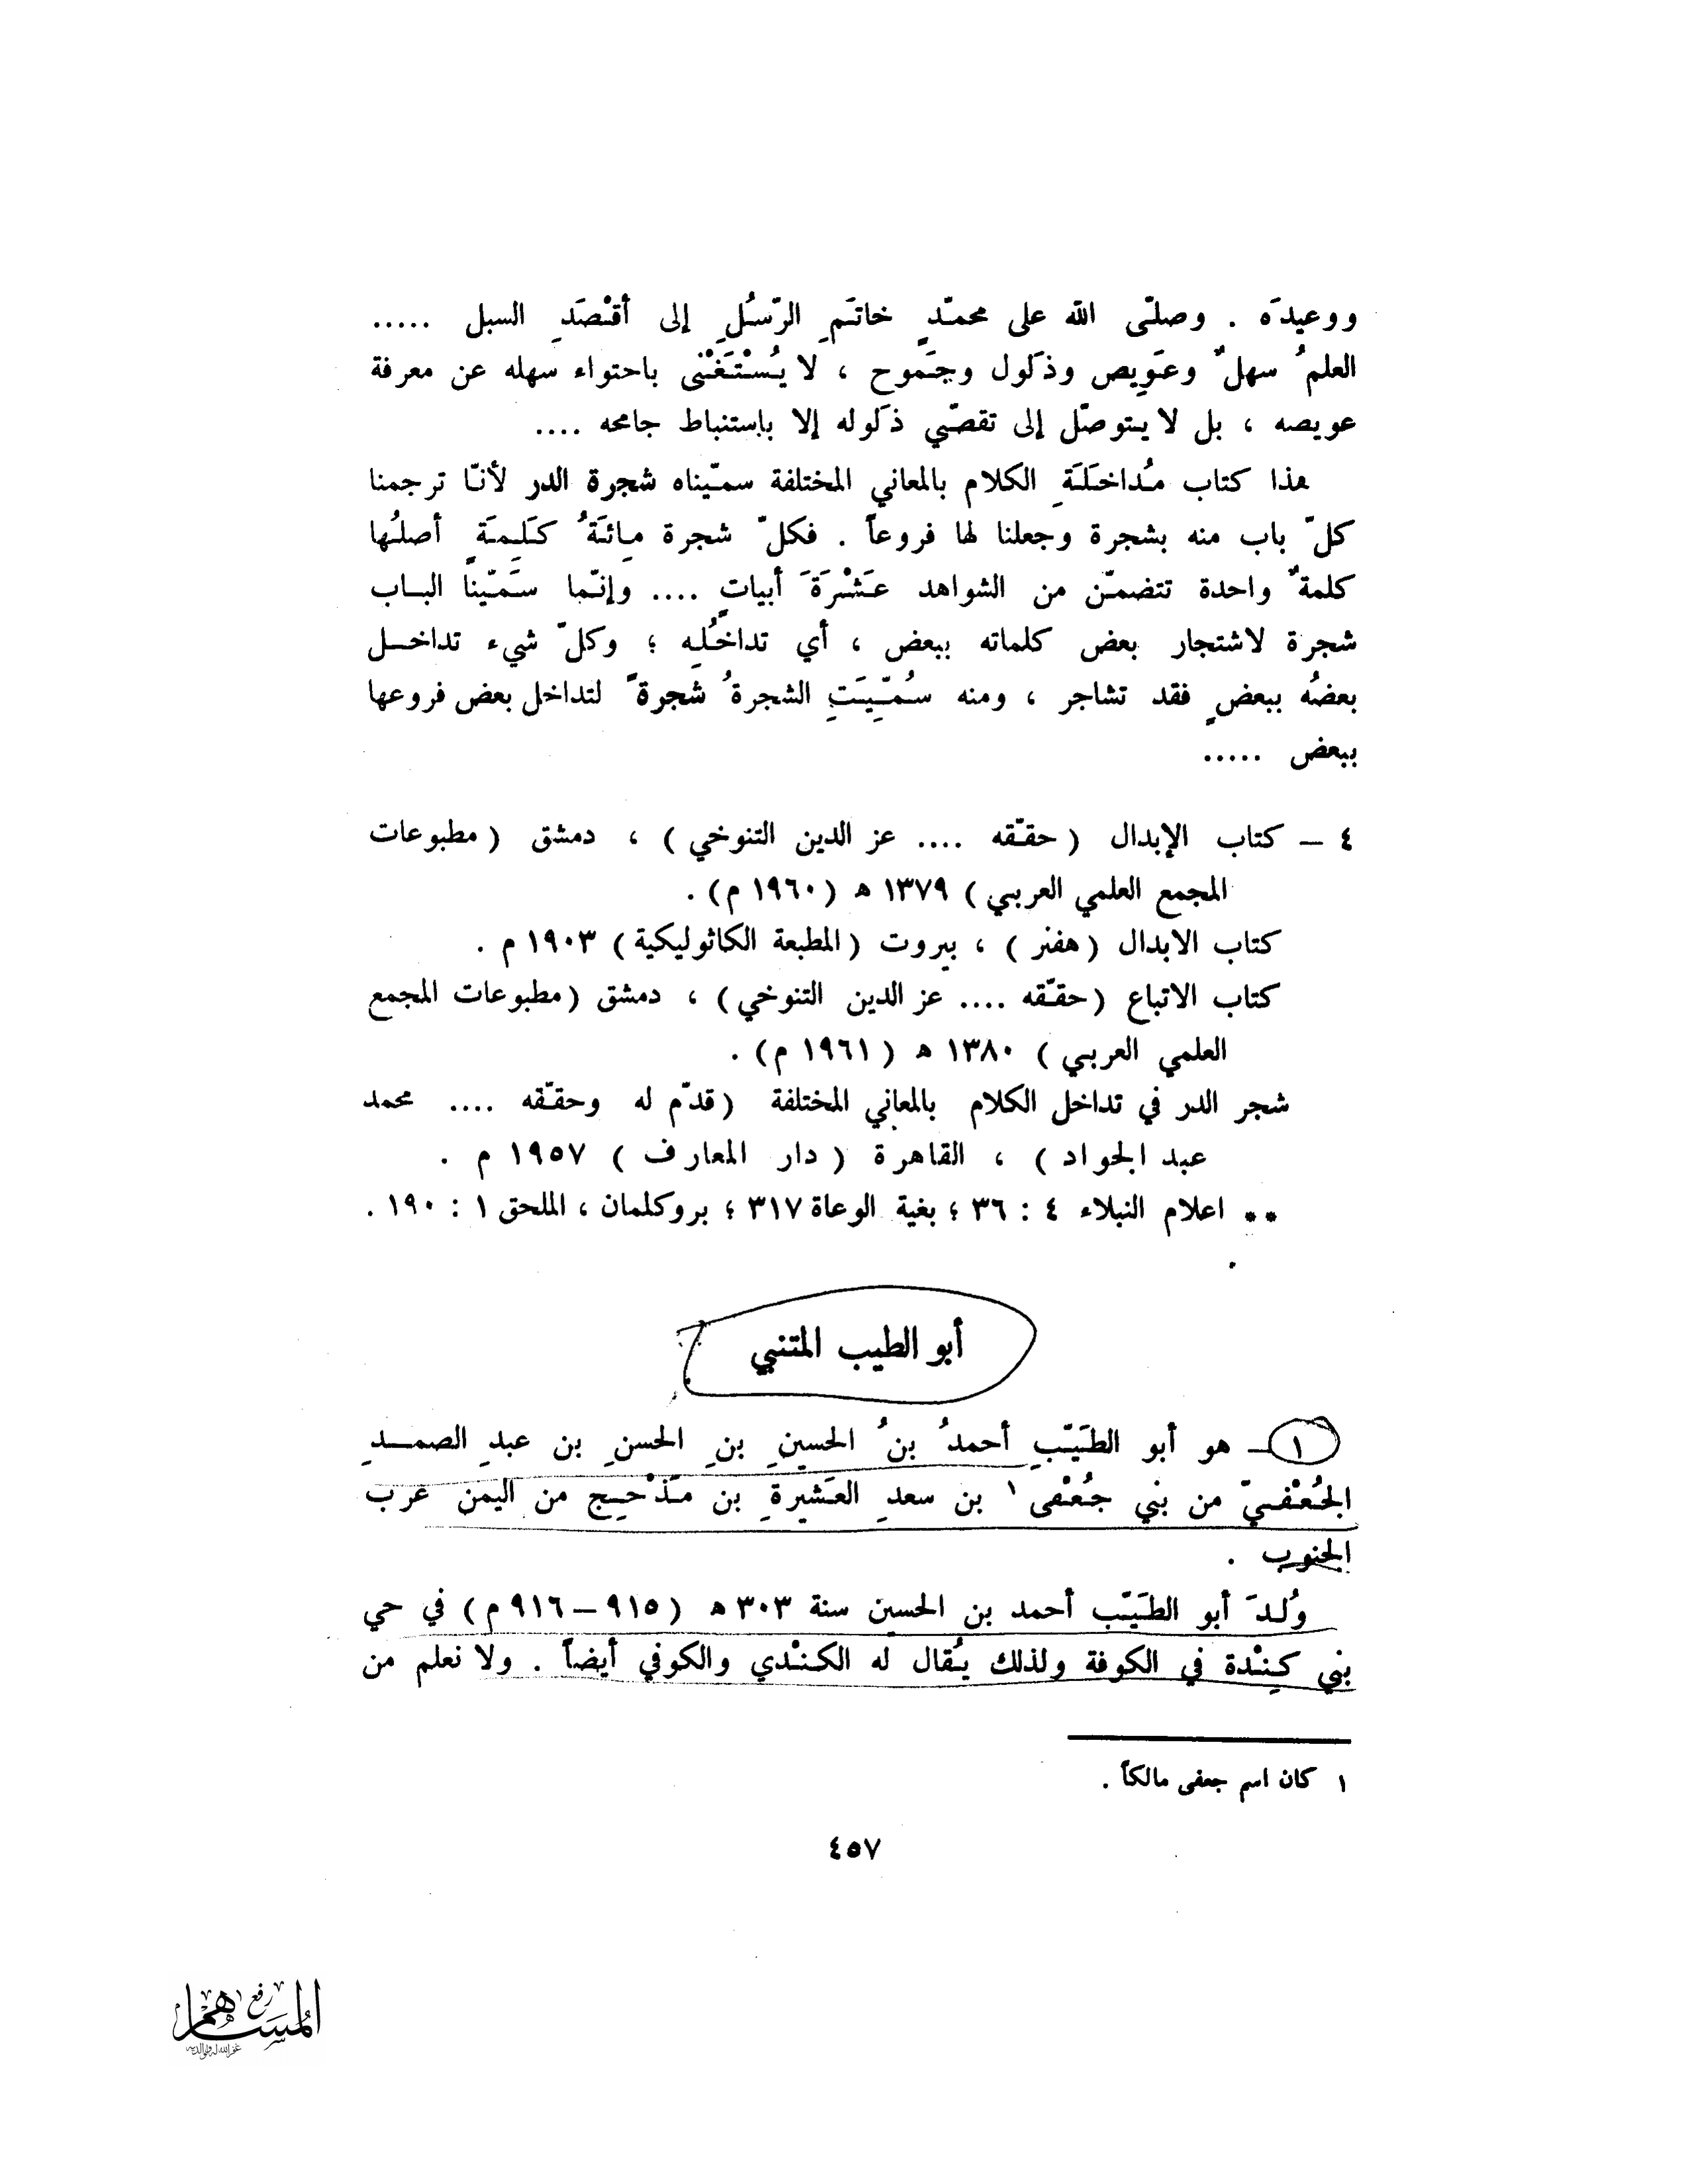 ووعيدَه . وصلّى الله على محمّدٍ خاتَمِ الرّسُلِ إلى أقْصَدِ السبل .....
العلمُ سهلٌ وعَويص وذَلول وجَموح ، لا يُسْتَغْنى باحتواء سهله عن معرفة
عويصه ، بل لا يتوصّل إلى تقصّي ذَلوله إلا بإستنباط جامحه ....
هذا كتاب مُداخَلَةِ الكلام بالمعاني المختلفة سمّيناه شجرة الدر لأنّا ترجمنا
كلّ باب منه بشجرة وجعلنا لها فروعاً . فكلّ شجرة مِائَةُ كَلِمَةٍ أصلُها
كلمةٌ واحدة تتضمّن من الشواهد عَشْرَةَ أبياتٍ .... وإنّما سَمّينا الباب
شجرة لاشتجار بعض كلماته ببعض ، أي تداخُلِه ؛ وكلّ شيء تداخل
بعضُه ببعضٍ فقد تشاجر ، ومنه سُمّيَتِ الشجرةُ شجرةً لتداخل بعض فروعها
ببعض .....
٤ – كتاب الإبدال ( حقّقه .... عز الدين التنوخي ) ، دمشق ( مطبوعات
المجمع العلمي العربي ) ١٣٧٩ ه ( ١٩٦٠ م ) .
كتاب الابدال ( هفنر ) ، بيروت ( المطبعة الكاثوليكية ) ١٩٠٣ م .
كتاب الاتباع ( حقّقه .... عز الدين التنوخي ) ، دمشق ( مطبوعات المجمع
العلمي العربي ) ١٣٨٠ ه ( ١٩٦١ م ) .
شجر الدر في تداخل الكلام بالمعاني المختلفة ( قدّم له وحقّقه .... محمد
عبد الجواد ) ، القاهرة ( دار المعارف ) ١٩٥٧ م .
** اعلام النبلاء ٤ : ٣٦ ؛ بغية الوعاة ٣١٧ ؛ بروكلمان ، الملحق ١ : ١٩٠ .
أبو الطيب المتنبي
١ – هو أبو الطَيّبِ أحمدُ بنُ الحسينِ بنِ الحسنِ بن عبدِ الصمدِ
الجُعْفيّ من بني جُعْفى ١ بن سعدِ العَشيرةِ بن مَذْحِج من اليمن عرب
الجنوب .
وُلدَ أبو الطَيّب أحمد بن الحسين سنة ٣٠٣ ه ( ٩١٥ – ٩١٦ م ) في حي
بني كِنْدة في الكوفة ولذلك يُقال له الكنْدي والكوفي أيضاً . ولا نعلم من
١ كان اسم جعفى مالكاً .
٤٥٧
رفع
المساهم
غفر الله له ولوالديه